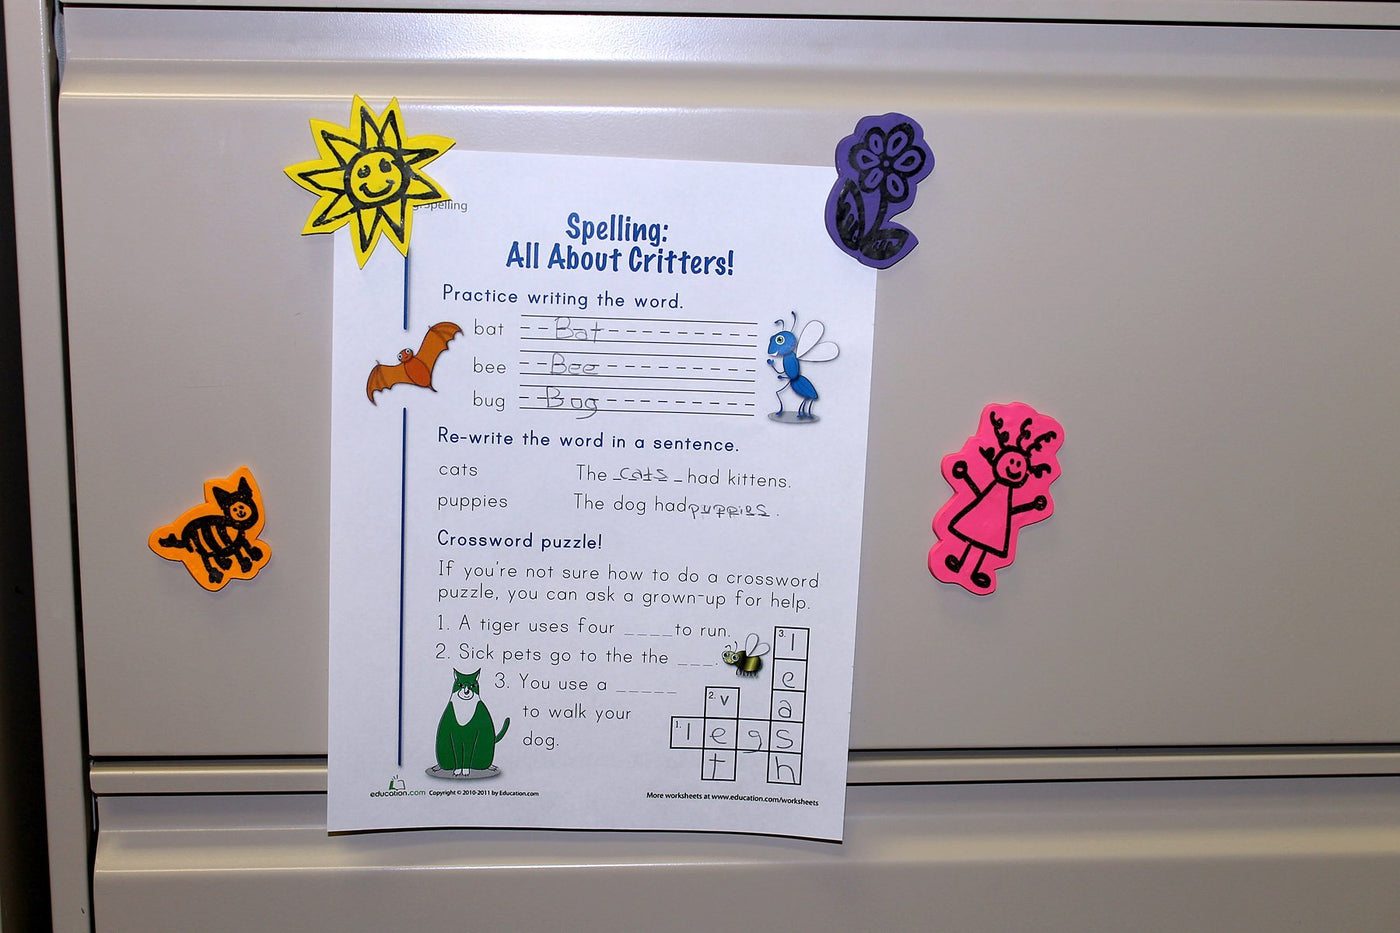 Spelling
Spelling:
All About Critters!
Practice writing the word.
bat Bat
bee Bee
bug Bog
Re-write the word in a sentence.
cats The cats had kittens.
puppies The dog had puppies.
Crossword puzzle!
If you're not sure how to do a crossword
puzzle, you can ask a grown-up for help.
1. A tiger uses four ____ to run.
2. Sick pets go to the the ___.
3. You use a _____
to walk your
dog.
3. l
e
2. v a
1. l e g s
t h
education.com Copyright © 2010-2011 by Education.com
More worksheets at www.education.com/worksheets